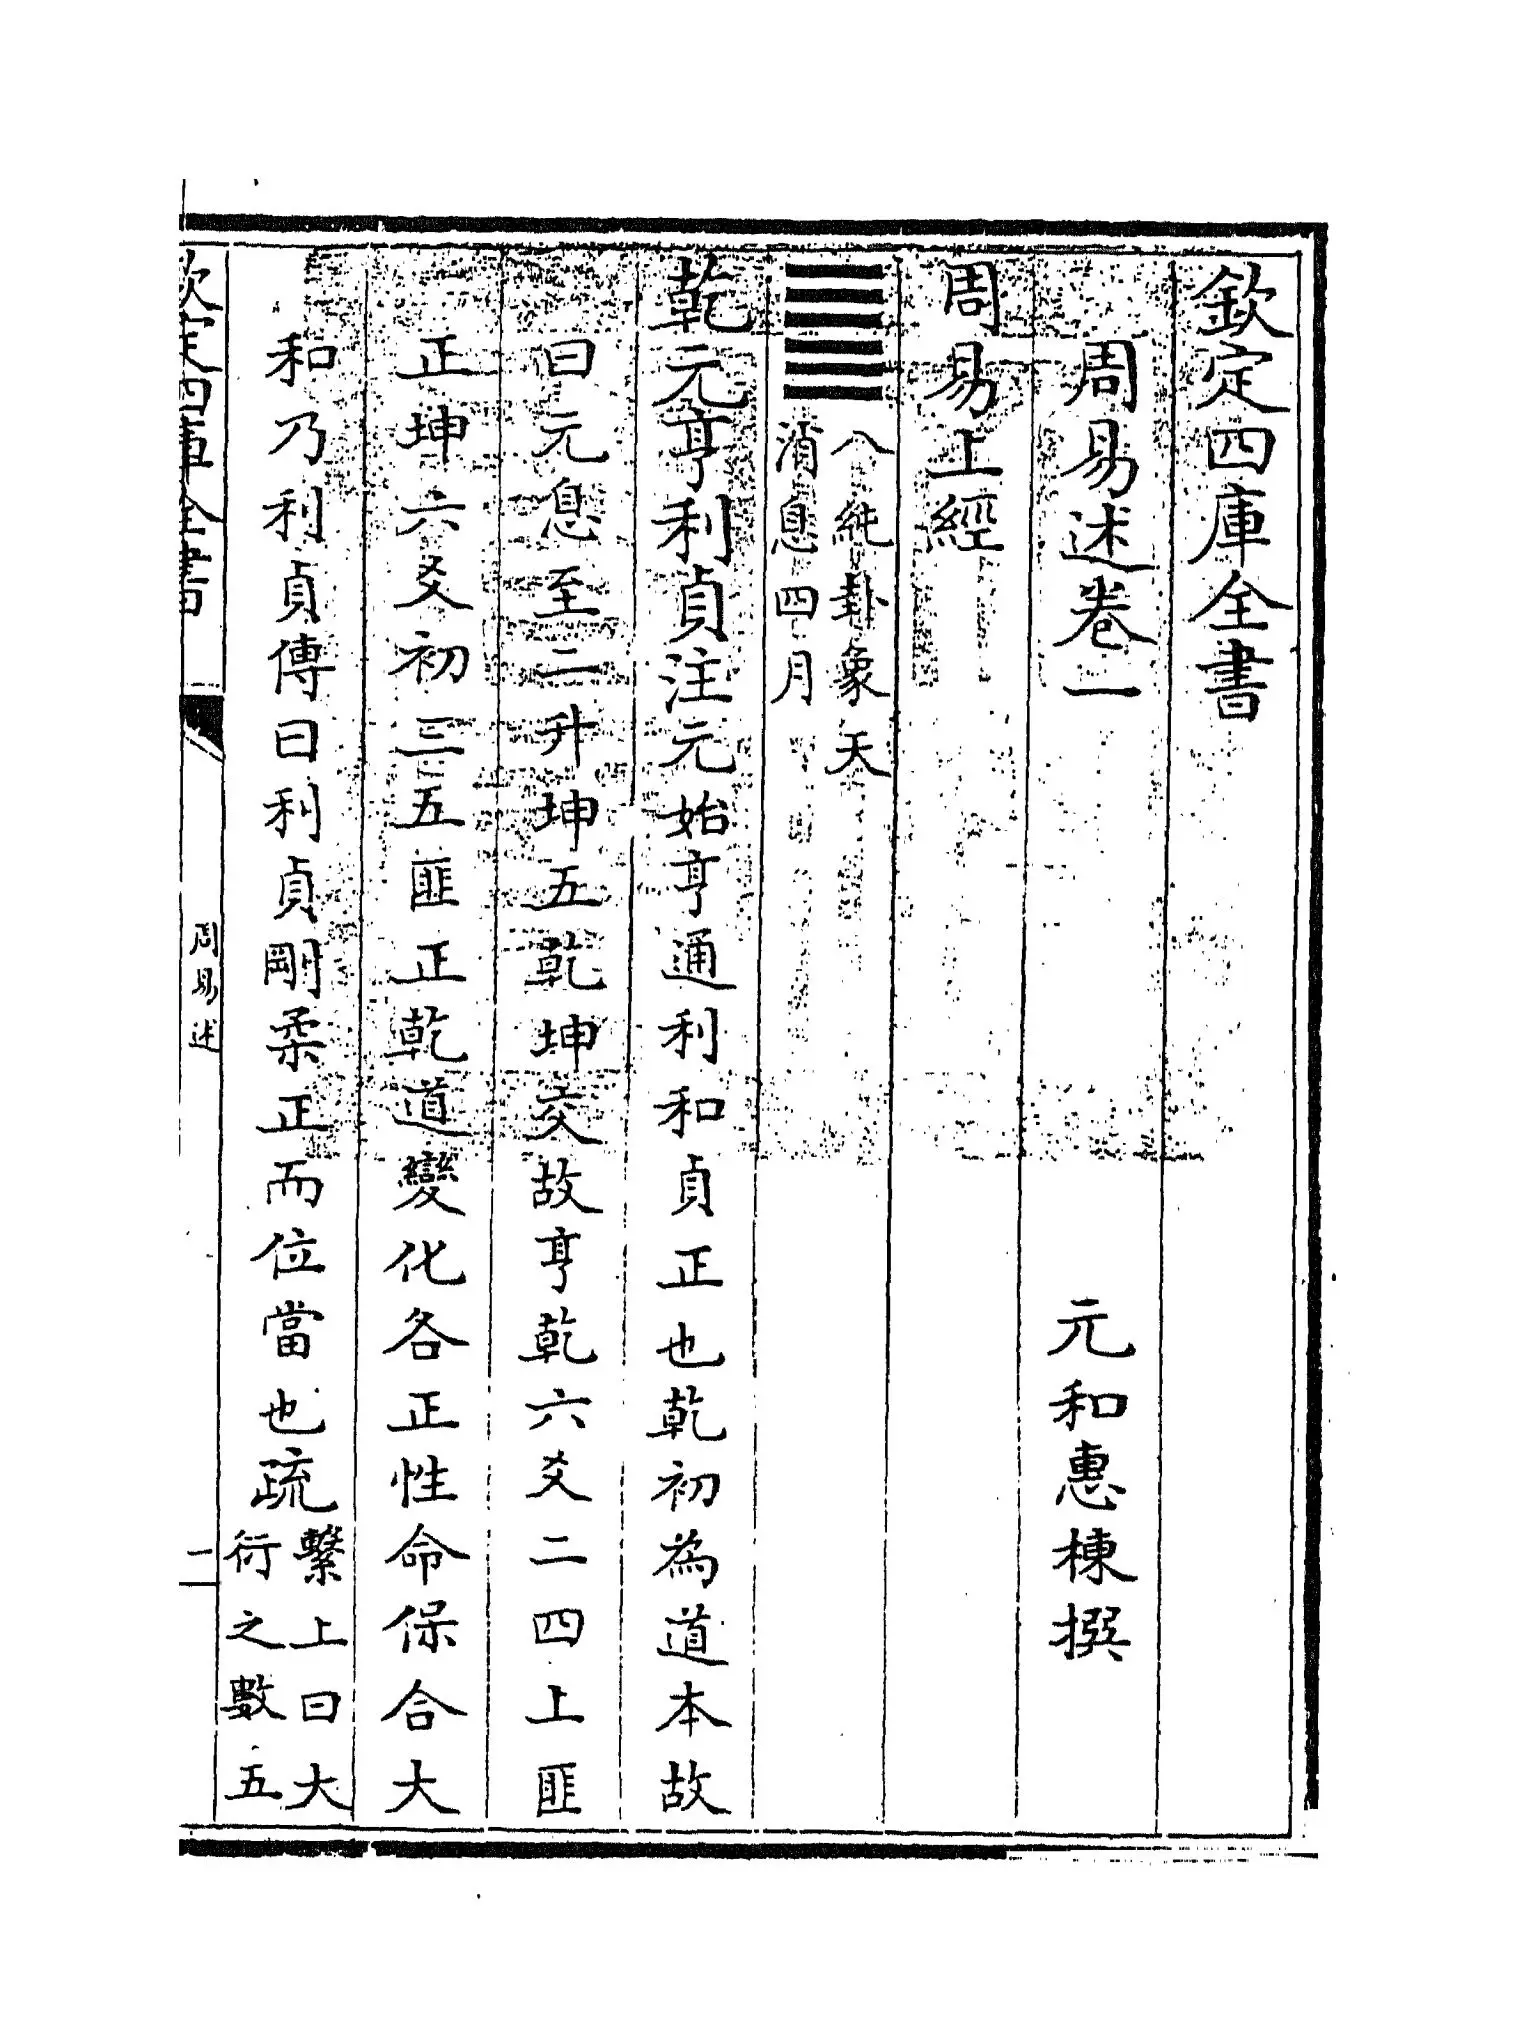 欽定四庫全書
周易述卷一
元和惠棟撰
周易上經
八純卦象天
消息四月
乾元亨利貞注元始亨通利和貞正也乾初為道本故
曰元息至二升坤五乾坤交故亨乾六爻二四上匪
正坤六爻初三五匪正乾道變化各正性命保合大
和乃利貞傳曰利貞剛柔正而位當也疏
繫上曰大
衍之數五
欽定四庫全書
周易述
一